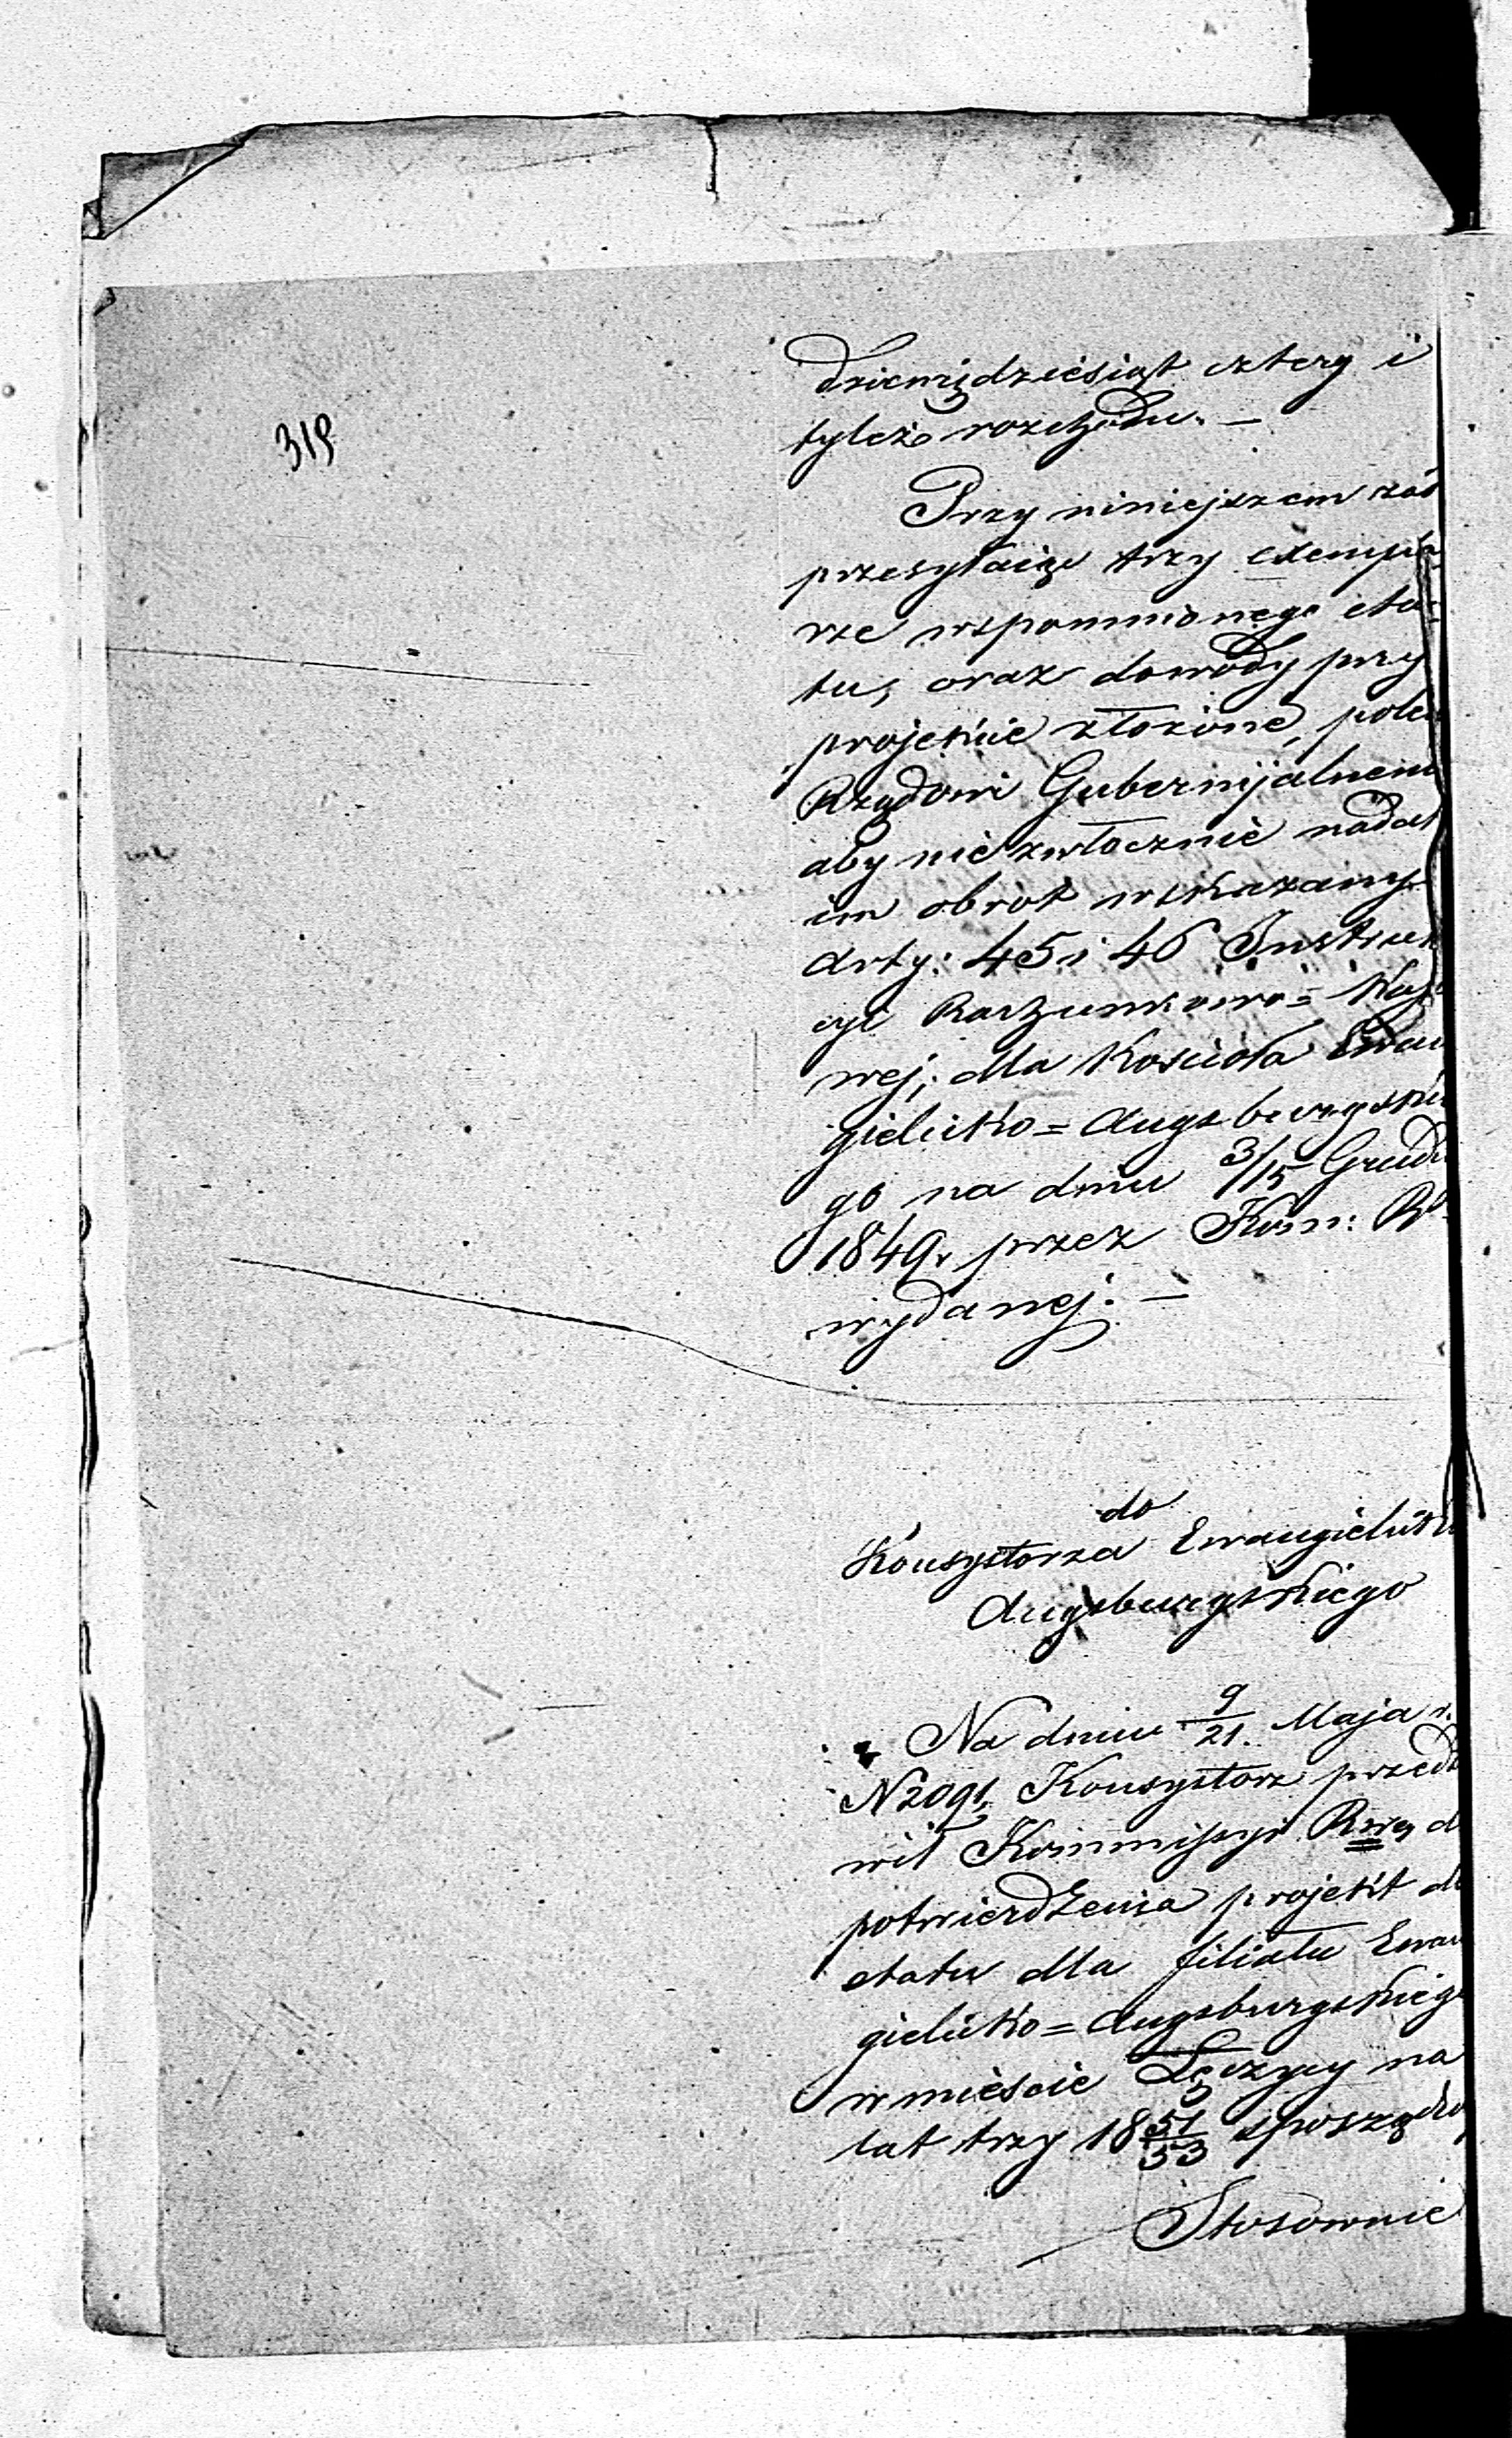 319
dziewiędziesiąt cztery i
tyleż rozchodu. —
Przy niniejszem zaś
przesyłaiąc trzy exempla
rze wspomnionego eta=
tu, oraz dowody przy
projekcie złożone, poleca
Rządowi Gubernijalnemu
aby niezwłocznie nadał
im obrót wskazany
Arty: 45 i 46 Instruk
cyi Rachunkowo=Kass
wej, dla Kościoła Ewan
gielicko=Augsburgskie
go na dniu 3/15 Grudn
1849 r. przez Kom: Rz
wydanej. —
do
Konsystorza Ewangielicko
Augsburgskiego
Na dniu 9/21. Maja r.
N 2091, Konsystorz przedst
wił Kommissyi Rwej d
potwierdzenia projekt do
etatu dla filiału Ewan
gielicko=Augsburgskiego
w mieście Łęczycy na
lat trzy 1851/53 sporządzo
Stosownie